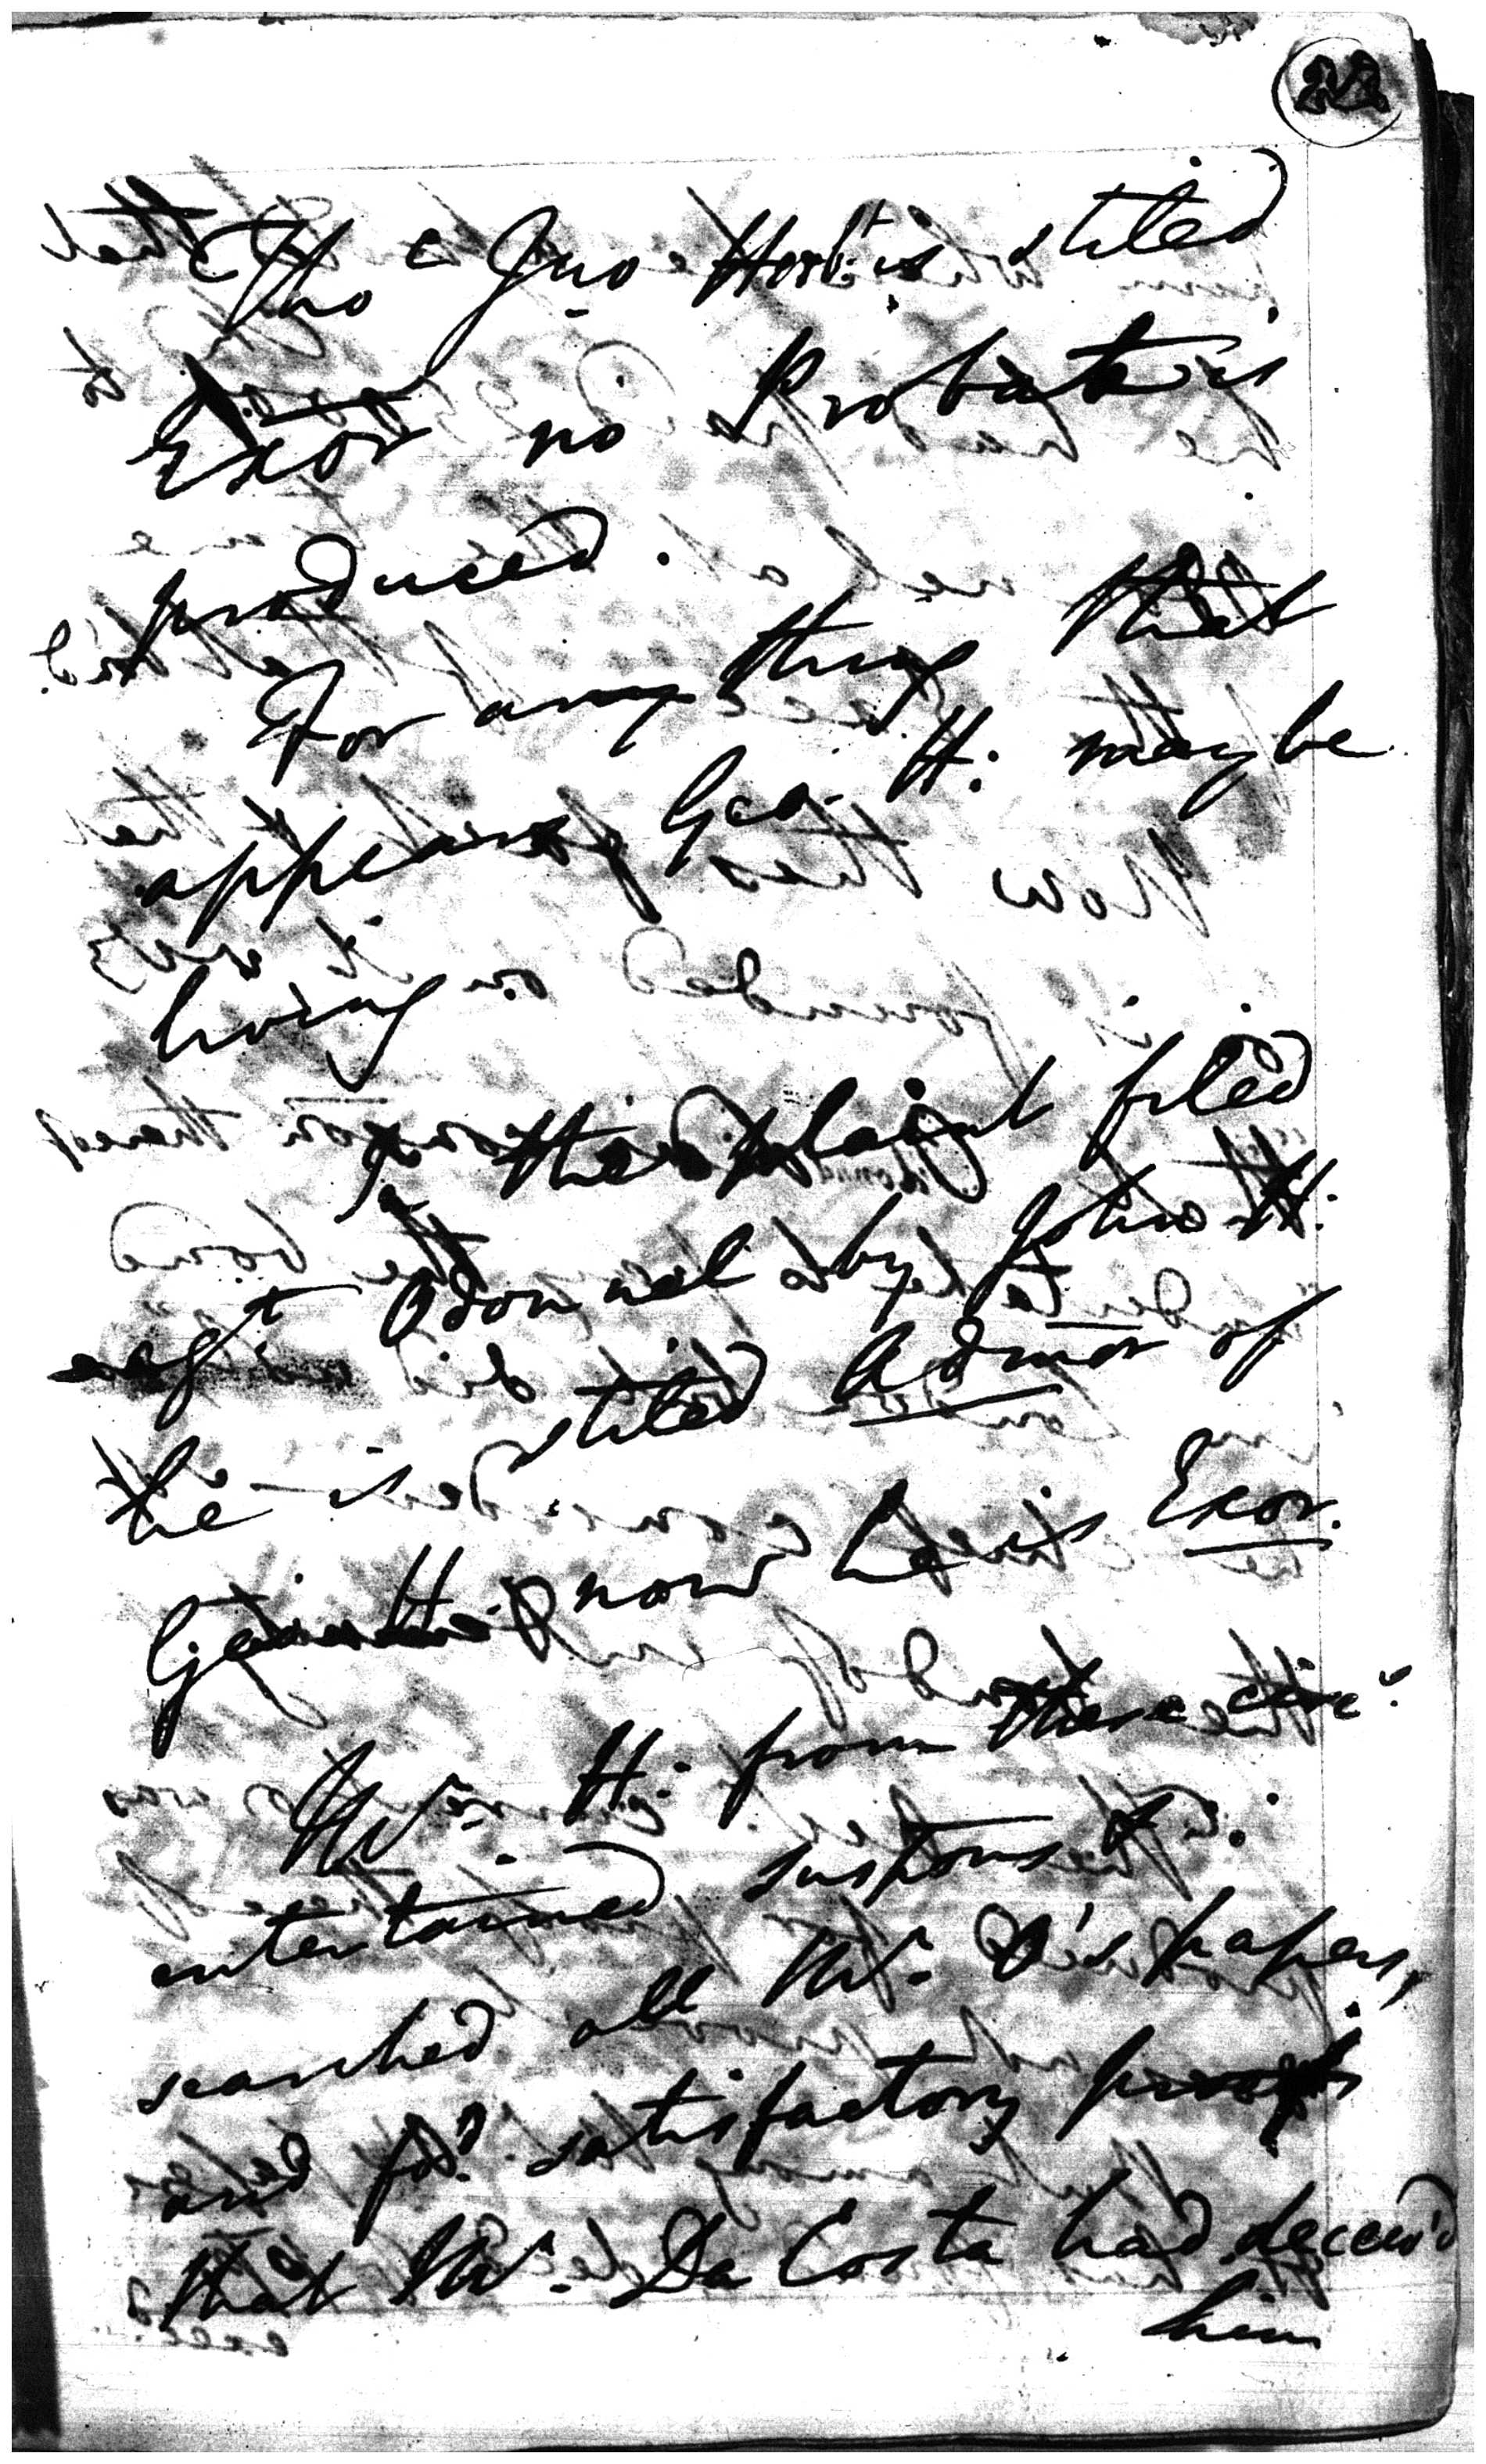 Tho Jno Hort. is stiled
Exor no Probate is
produced.
For any thing that
appears Geo. H: may be
living
In the plaint filed
agt Odonnel by John H:
he is stiled Admor of
Geo H: now he is Exor.
Mr. H: from these circ
entertained suspions &c.
searched all Mr. O's papers,
and fod. satisfactory proofs
that Mr. Da Costa had deceiv'd
him